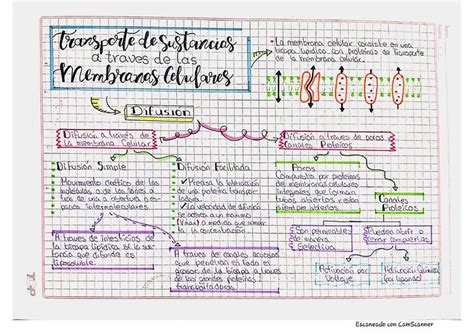 Transporte de Sustancias
a traves de las
Membranas Celulares
• La membrana celular consiste en una
bicapa lipidica con proteinas de Transporte
de la membrana celular.
Difusión
Difusión a través de
la membrana Celular
Difusión a traves de poros
Canales Proteicos
Difusión Simple
Movimiento cinético de las
moleculas o de los iones a
traves de una abertura o espacios
intermoleculares
A traves de intersticios de
la bicapa lipidica si la sustancia
que difunde es
liposoluble.
Difusión Facilitada
✓ Precisa la interacción
de una proteina transportadora.
✓ La velocidad de difusión
se acerca a un maximo
(Vmax) a medida que aumenta
la concentración
A traves de canales acuosos
que penetran en todo el
grosor de la bicapa a traves
de las grandes proteinas
transportadoras
Poros
Compuestos por proteinas
de membranas celulares
integrales que forman
tubos abiertos y están
siempre abiertos
Son permeables
de manera
Selectiva
Canales
Proteicos
Pueden abrir o
cerrar compuertas
Activación por
Voltaje
Activación Química
(por ligando)
Escaneado con CamScanner